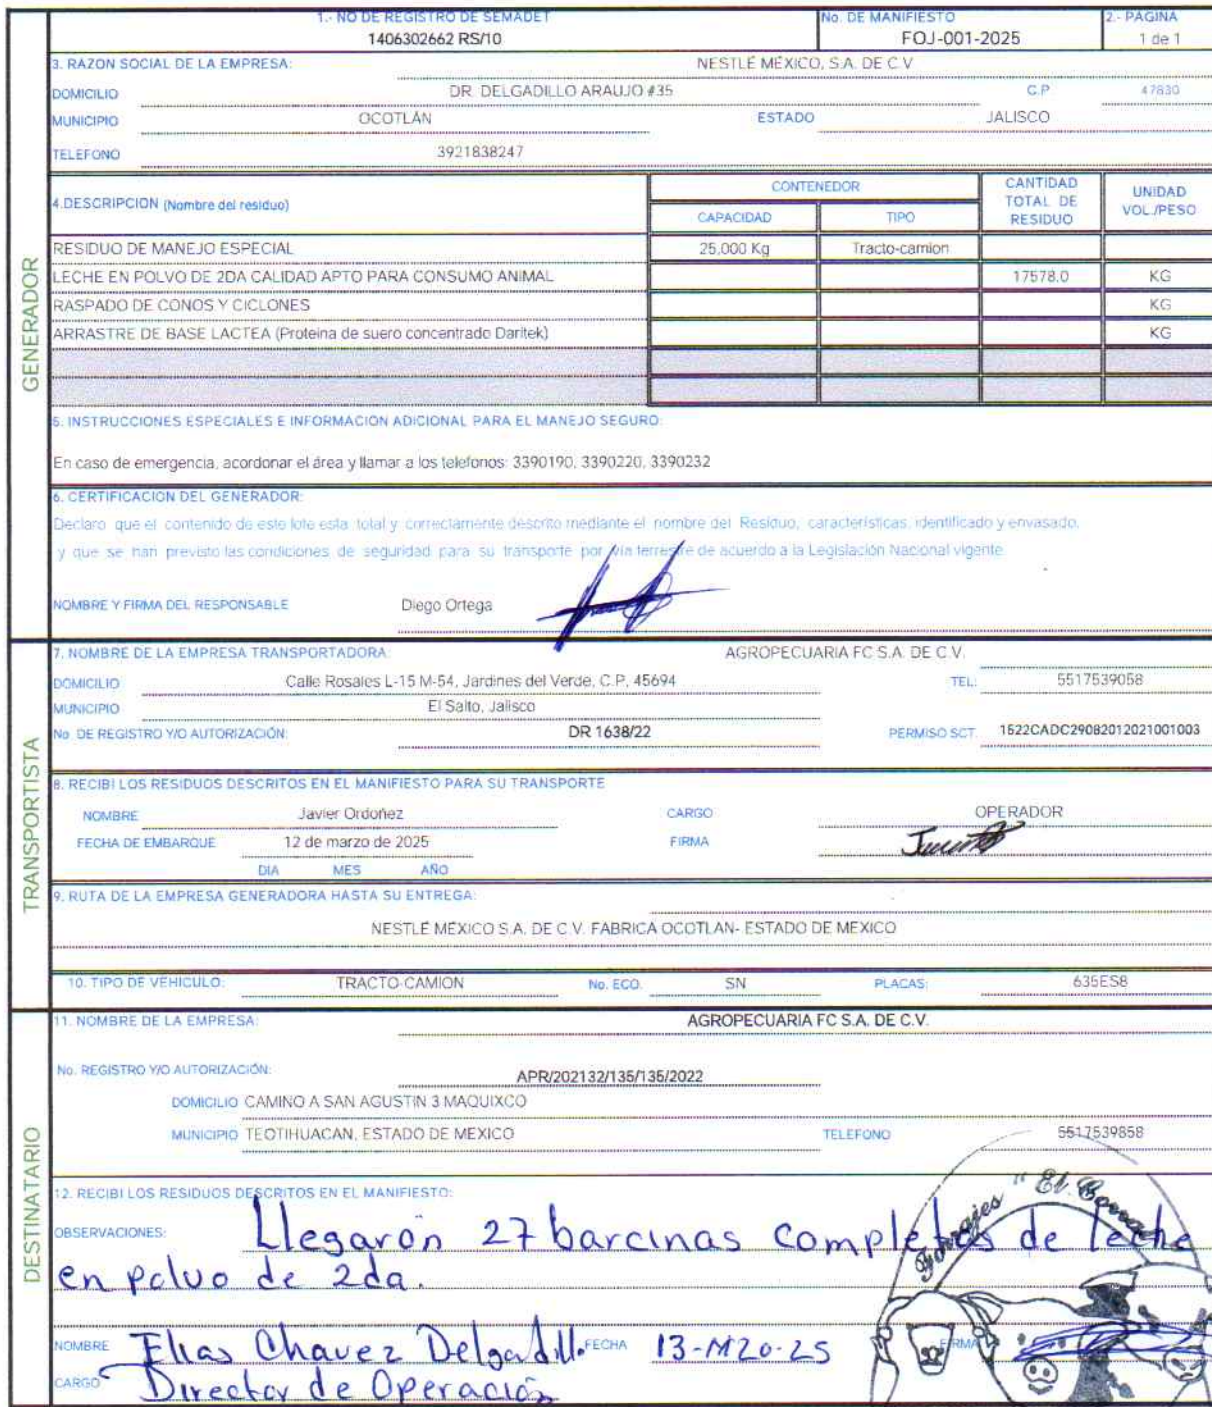 1.- NO DE REGISTRO DE SEMADET No. DE MANIFIESTO 2.- PAGINA
1406302662 RS/10 FOJ-001-2025 1 de 1
3. RAZON SOCIAL DE LA EMPRESA: NESTLÉ MÉXICO, S.A. DE C.V
DOMICILIO DR. DELGADILLO ARAUJO #35 C.P 47830
MUNICIPIO OCOTLÁN ESTADO JALISCO
TELEFONO 3921838247
4.DESCRIPCION (Nombre del residuo) CONTENEDOR CANTIDAD TOTAL DE RESIDUO UNIDAD VOL./PESO
CAPACIDAD TIPO
RESIDUO DE MANEJO ESPECIAL 25,000 Kg Tracto-camion
LECHE EN POLVO DE 2DA CALIDAD APTO PARA CONSUMO ANIMAL 17578.0 KG
RASPADO DE CONOS Y CICLONES KG
ARRASTRE DE BASE LACTEA (Proteina de suero concentrado Daritek) KG
GENERADOR
5. INSTRUCCIONES ESPECIALES E INFORMACION ADICIONAL PARA EL MANEJO SEGURO:
En caso de emergencia, acordonar el área y llamar a los telefonos: 3390190, 3390220, 3390232
6. CERTIFICACION DEL GENERADOR:
Declaro que el contenido de este lote esta total y correctamente descrito mediante el nombre del Residuo, características, identificado y envasado,
y que se han previsto las condiciones de seguridad para su transporte por vía terrestre de acuerdo a la Legislación Nacional vigente.
NOMBRE Y FIRMA DEL RESPONSABLE Diego Ortega
TRANSPORTISTA
7. NOMBRE DE LA EMPRESA TRANSPORTADORA: AGROPECUARIA FC S.A. DE C.V.
DOMICILIO Calle Rosales L-15 M-54, Jardines del Verde, C.P. 45694 TEL: 5517539058
MUNICIPIO El Salto, Jalisco
No. DE REGISTRO Y/O AUTORIZACIÓN: DR 1638/22 PERMISO SCT. 1522CADC29082012021001003
8. RECIBI LOS RESIDUOS DESCRITOS EN EL MANIFIESTO PARA SU TRANSPORTE
NOMBRE Javier Ordoñez CARGO OPERADOR
FECHA DE EMBARQUE 12 de marzo de 2025 FIRMA
DIA MES AÑO
9. RUTA DE LA EMPRESA GENERADORA HASTA SU ENTREGA:
NESTLÉ MÉXICO S.A. DE C.V. FABRICA OCOTLAN- ESTADO DE MEXICO
10. TIPO DE VEHICULO: TRACTO-CAMION No. ECO. SN PLACAS: 635ES8
DESTINATARIO
11. NOMBRE DE LA EMPRESA: AGROPECUARIA FC S.A. DE C.V.
No. REGISTRO Y/O AUTORIZACIÓN: APR/202132/135/135/2022
DOMICILIO CAMINO A SAN AGUSTIN 3 MAQUIXCO
MUNICIPIO TEOTIHUACAN, ESTADO DE MEXICO TELEFONO 5517539858
12. RECIBI LOS RESIDUOS DESCRITOS EN EL MANIFIESTO:
OBSERVACIONES: Llegarón 27 barcinas completas de leche
en polvo de 2da.
Forrajes "El Corral
NOMBRE Elias Chavez Delgadillo FECHA 13-Mzo-25 FIRMA
CARGO Director de Operación